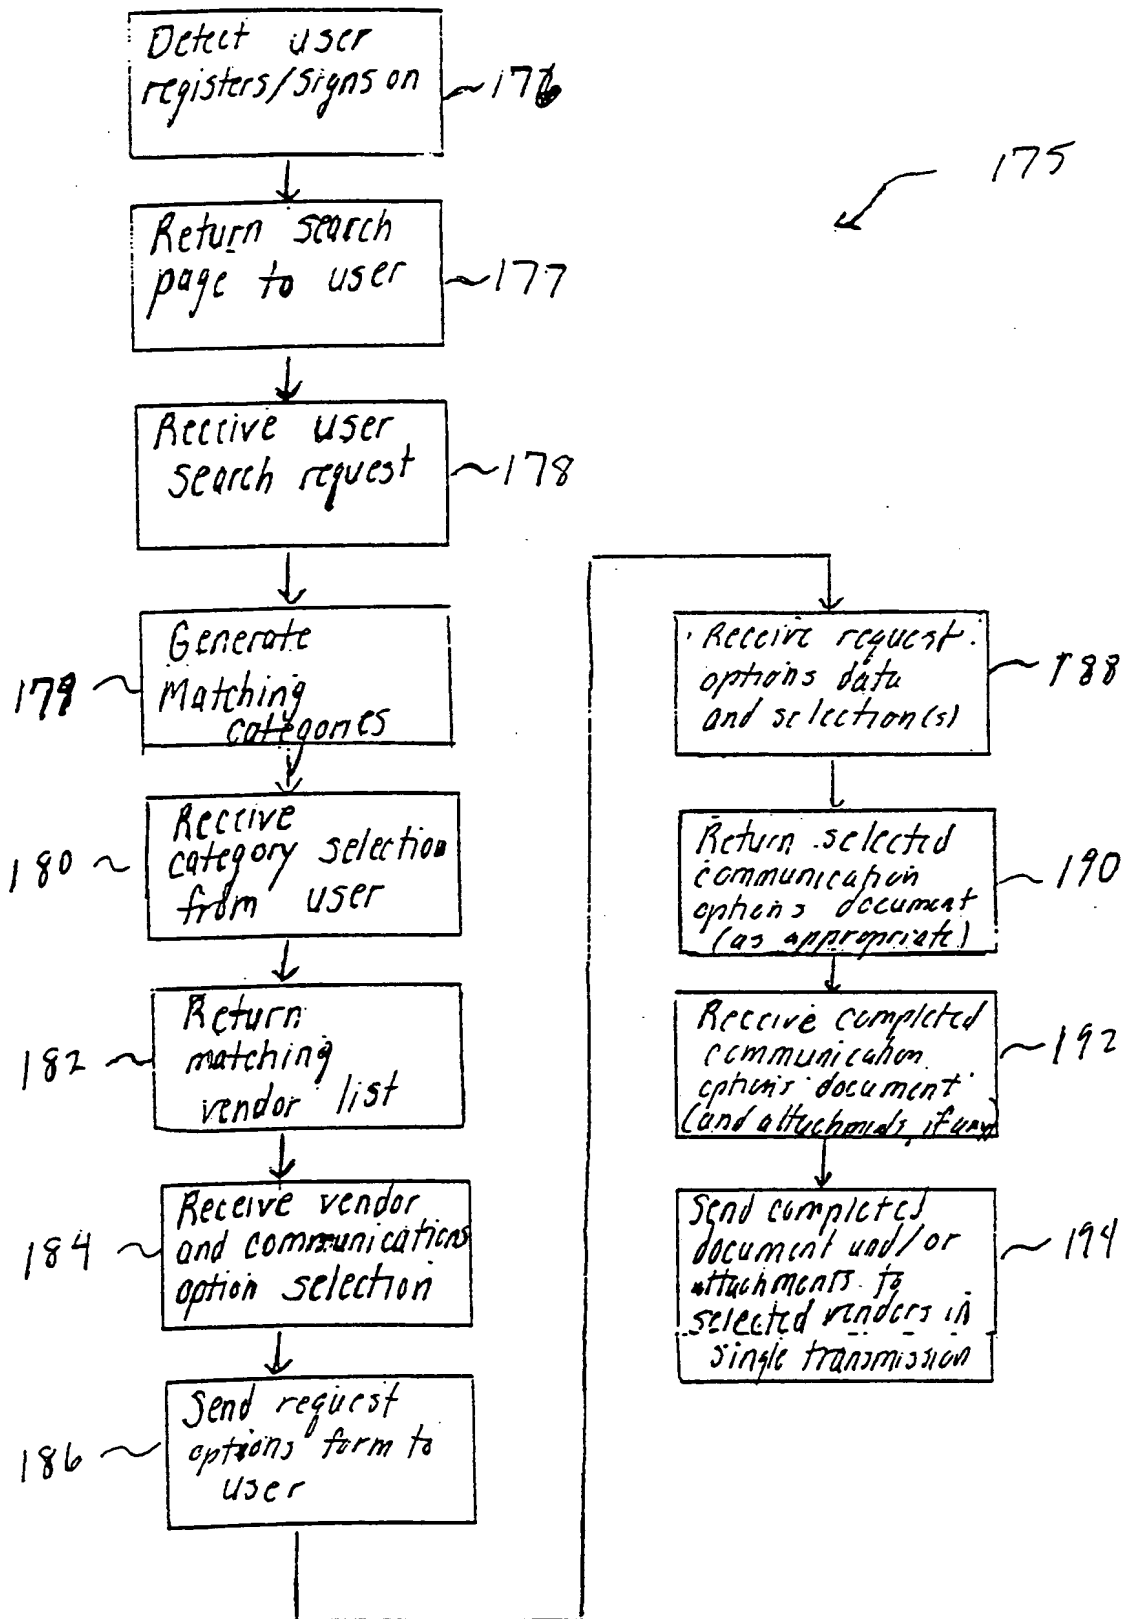 Detect user
registers/signs on
~176
175
Return search
page to user
~177
Receive user
search request
~178
Generate
Matching
categories
179~
Receive
category selection
from user
180~
Return
matching
vendor list
182~
Receive vendor
and communications
option selection
184~
Send request
options form to
user
186~
Receive request
options data
and selection(s)
~188
Return selected
communication
options document
(as appropriate)
~190
Receive completed
communication
options document
(and attachments, if any)
~192
Send completed
document and/or
attachments to
selected venders in
single transmission
~194